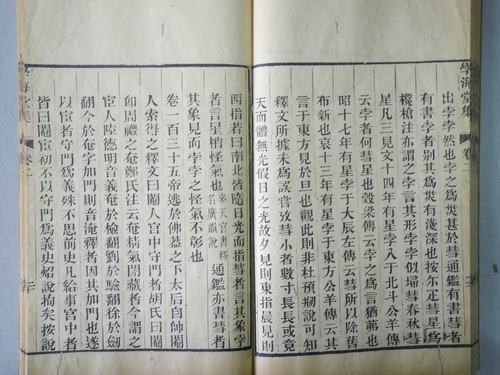 學海堂集
卷二
出字孛然也孛之為災甚於彗通鑑有書彗者
有書孛者別其為災有淺深也按尒疋彗星為
欃槍注亦謂之孛言其形孛孛似埽彗春秋彗
星凡三見文十四年有星孛入于北斗公羊傳
云孛者何彗星也穀梁傳云孛之為言猶茀也
昭十七年有星孛于大辰左傳云彗所以除舊
布新也哀十三年有星孛于東方公羊傳云其
言于東方見於旦也觀此則非杜預說可知
釋文所據未為誤嘗攷彗小者數寸長長或竟
天而體無光假日之光故夕見則東指晨見則
西指若日南北皆隨日光而指彗者言其象孛
者言星梢怪氣也參天官書釋名廣韻說通鑑亦書彗者
其象見而孛孛之怪氣不彰也
卷一百三十五帝逃於佛葢之下太后自帥閹
人索得之釋文曰閹人宮中守門者胡氏曰閹
卽周禮之奄鄭氏注云奄精氣閉藏者今謂之
宦人陸德明音義奄於檢翻劉於驗翻徐於劍
翻今於奄字加門則音淹釋者因其加門也遂
以宦者守門為義殊不思前史凡給事宮中者
皆曰閹宦初不以守門為義史炤說拘矣按說
學海堂集
卷二